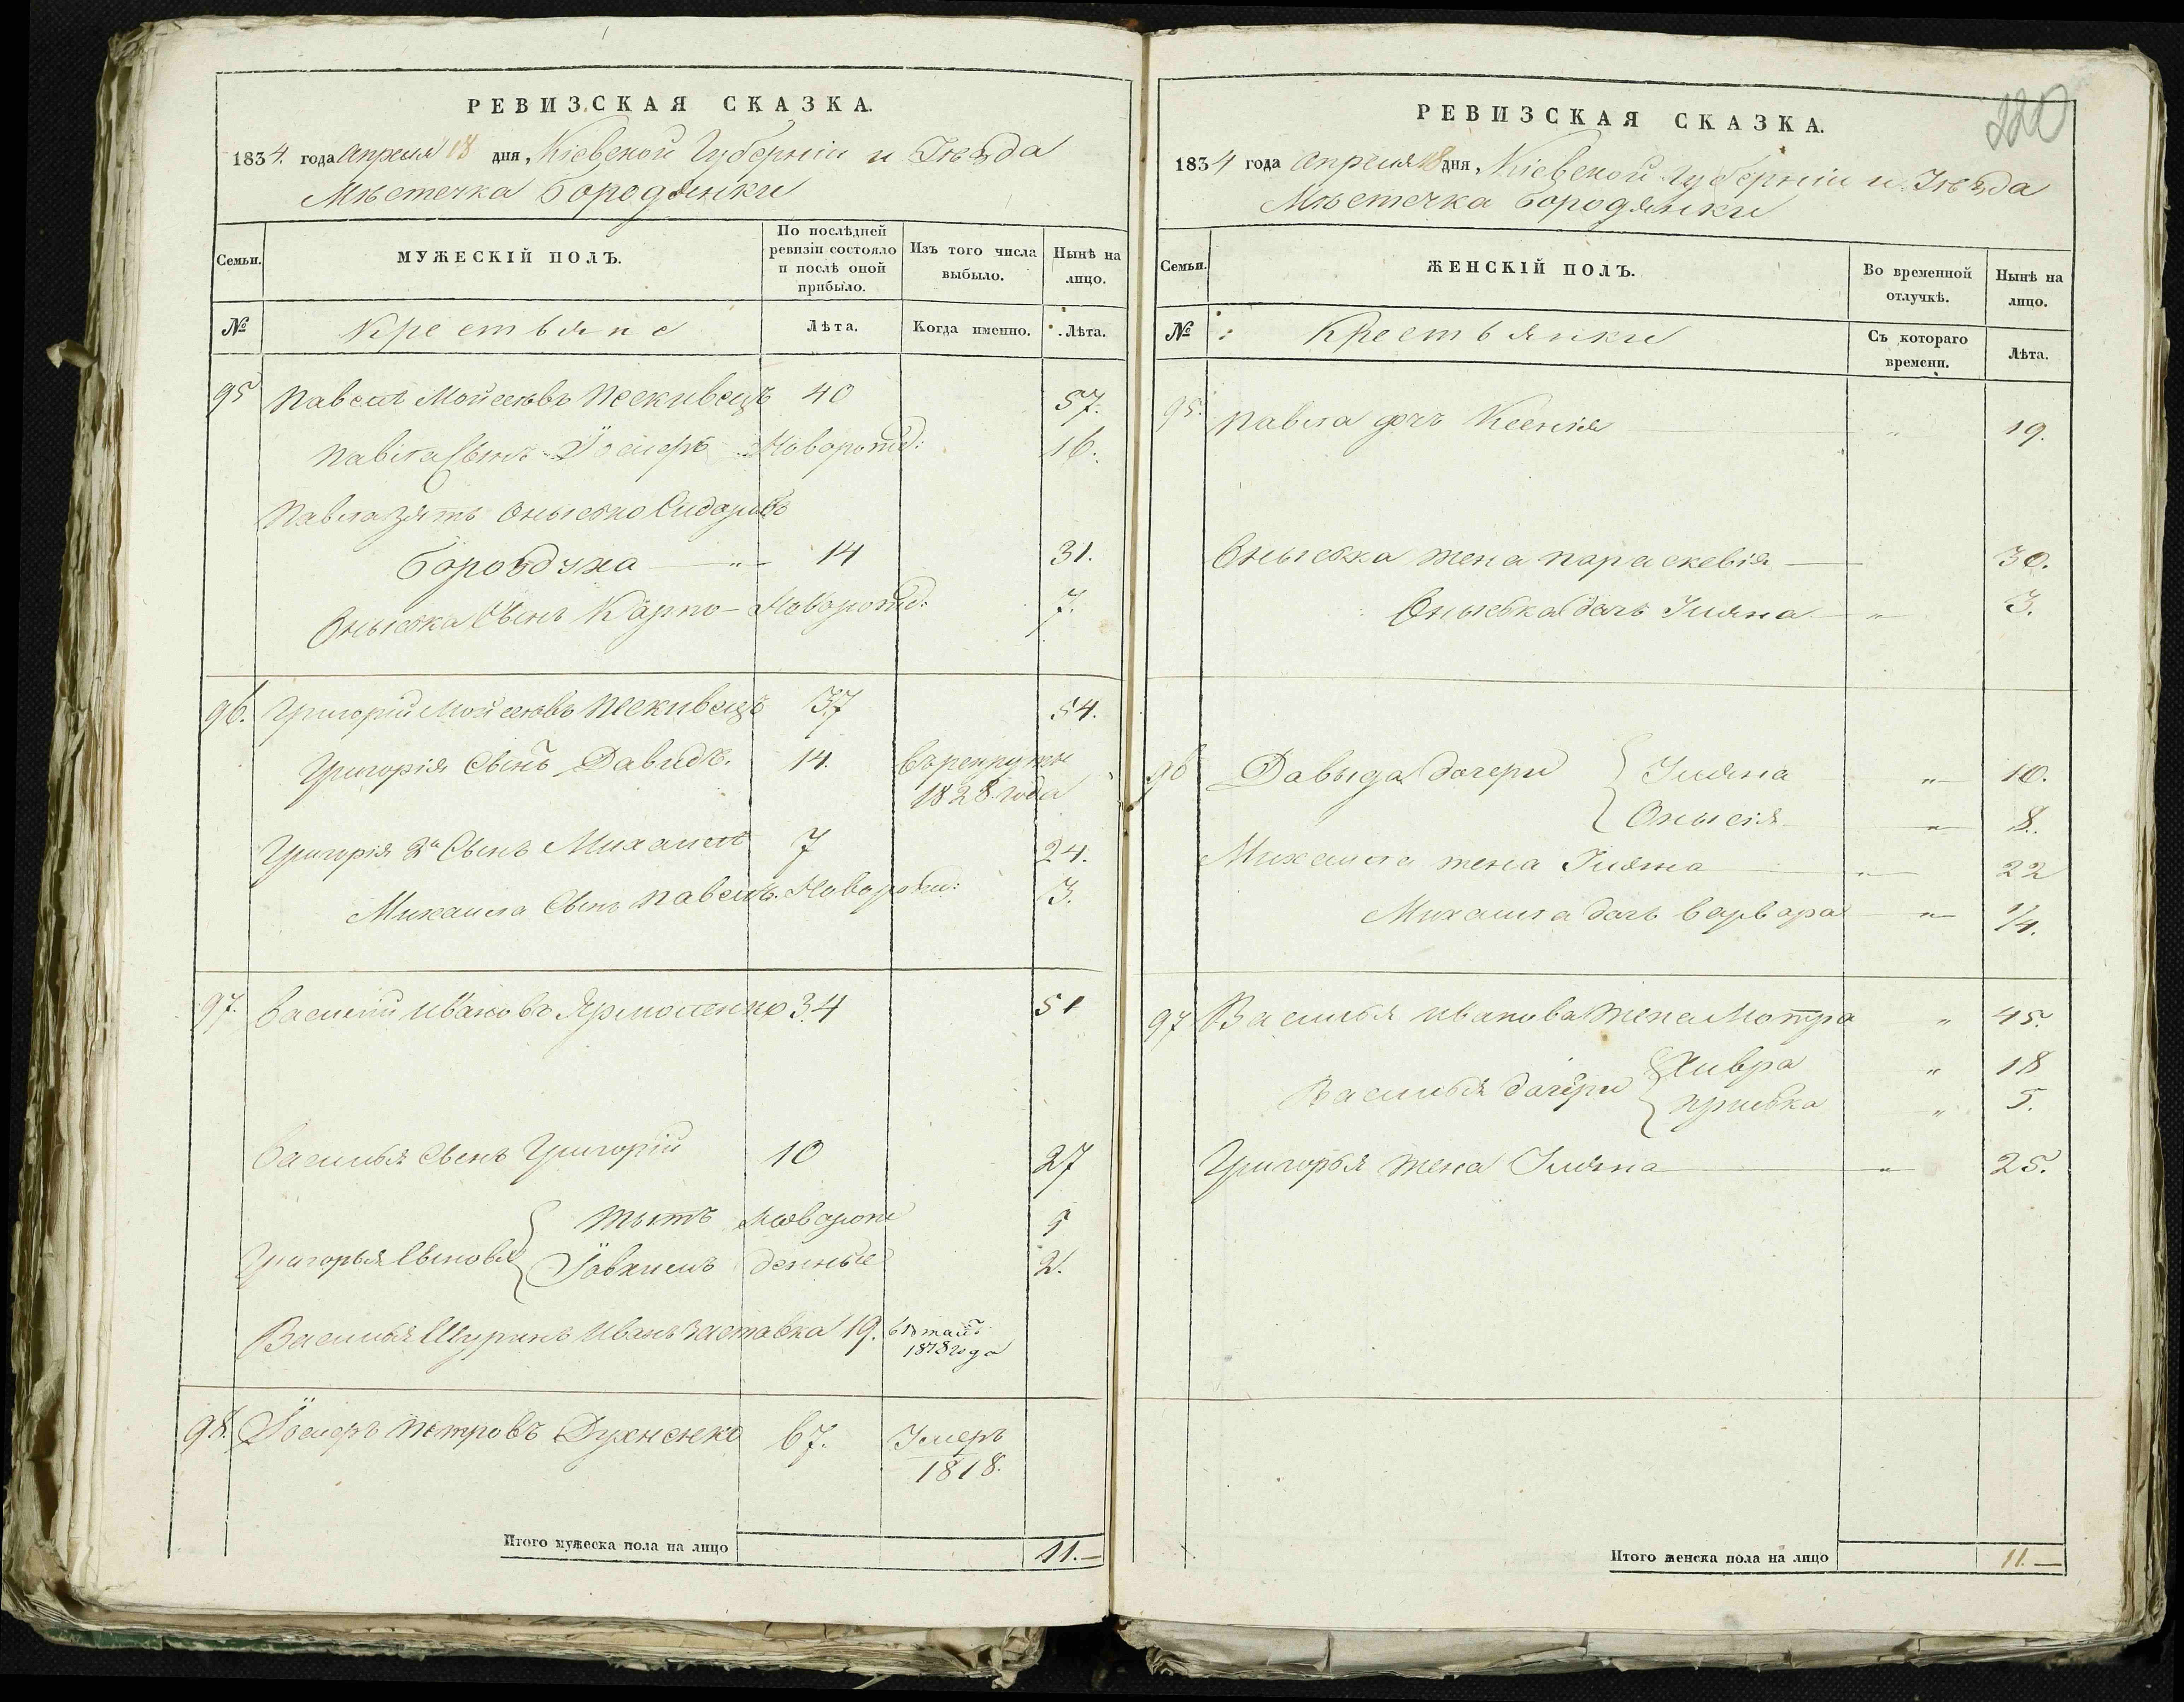 РЕВИЗСКАЯ СКАЗКА.
1834. года Апреля 18 дня, Кіевской Губерніи и Уезда
Мѣстечка Бородянки
Семьи.
МУЖЕСКІЙ ПОЛЪ.
По послѣдней ревизіи состояло и послѣ оной прибыло.
Изъ того числа выбыло.
Нынѣ на лицо.
№
Крестьяне
Лѣта.
Когда именно.
Лѣта.
95 Павелъ Мойсеѣвъ Пескивецъ 40 57.
Павла Сынъ Іосифъ Новорожд: 16.
Павла Зять Онысько Сидоровъ
Бороздуха — „ — 14 31.
Оныська Сынъ Карпо — Новорожд: 7.
96. Григорій Мойсеѣвъ Пескивецъ 37 54.
Григорія Сынъ Давидъ. 14. Въ рекруты
1828 года
Григорія 2й Сынъ Михаилъ 7 24.
Михаила Сынъ Павелъ. Новорожд: 3.
97. Василий Ивановъ Ярмоленко 34 51
Василья Сынъ Григорій 10 27
Григорья Сыновья { Тытъ Новорож 5
Іовхимъ денные 2.
Василья Шуринъ Иванъ Заставка 19.
98. Іосифъ Петровъ Духненко 67. Умеръ
1818.
Итого мужеска пола на лицо 11.—
220
РЕВИЗСКАЯ СКАЗКА.
1834 года Апреля 18 дня, Кіевской Губерніи и Уезда
Мѣстечка Бородянки
Семьи.
ЖЕНСКІЙ ПОЛЪ.
Во временной отлучкѣ.
Нынѣ на лицо.
№
Крестьянки
Съ котораго времени.
Лѣта.
95. Павла дочъ Ксенія „ 19.
Оныська жена Параскевія — 30.
Оныська дочъ Ульяна — „ — 3.
96 Давыда дочери { Ульяна „ — 10.
Онысія „ — 8.
Михаила жена Ульяна — „ — 22
Михаила дочъ Варвара — „ — 1/4.
97 Василья Иванова жена Мотря „ 45.
Василья дочери { Хивра „ 18
Приська „ 5.
Григорья жена Ульяна — „ — 25.
Итого женска пола на лицо 11.—